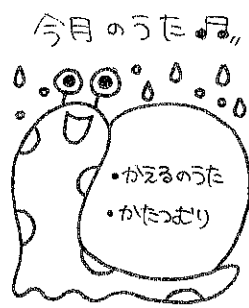 今月のうた♬
・かえるのうた
・かたつむり